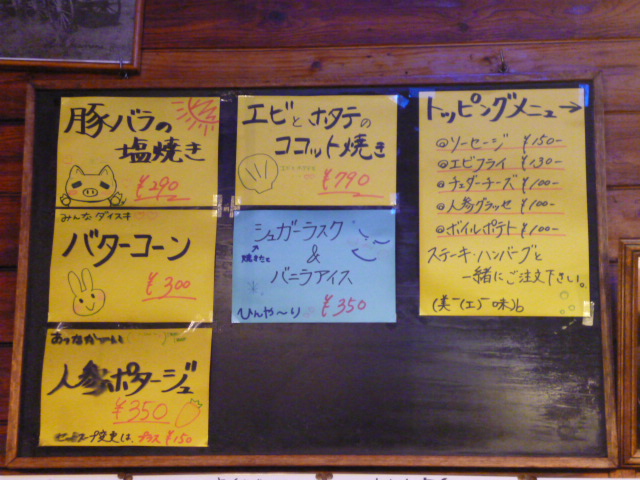 豚バラの
塩焼き
¥290
みんなダイスキ
バターコーン
¥300
あっつあつーい
人参ポタージュ
¥350
プラス ¥150
エビとホタテの
ココット焼き
¥790
シュガーラスク
焼きたて
&
バニラアイス
ひんや〜り ¥350
トッピングメニュー→
◎ソーセージ ¥150-
◎エビフライ ¥130-
◎チェダーチーズ ¥100-
◎人参グラッセ ¥100-
◎ボイルポテト ¥100-
ステーキ・ハンバーグと
一緒にご注文下さい。
(美ー(エ)ー味)b